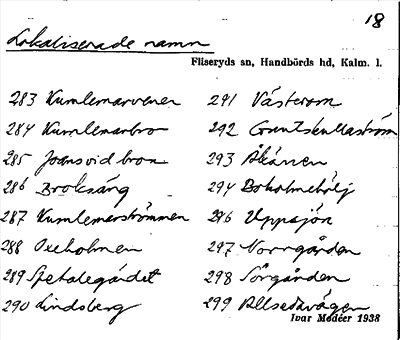 18
Lokaliserade namn
Fliseryds sn, Handbörds hd, Kalm. l.
283 Kumlemarvenen
284 Kumlemarbro
285 Joarsvid bron
286 Broksäng
287 Kumlemarströmmen
288 Oxeholmen
289 Spetalegärdet
290 Lindsberg
291 Västerom
292 Gruntskullaström
293 Åkärren
294 Boholmehölj
296 Uppsjön
297 Norrgården
298 Sörgården
299 Allsedavägen
Ivar Modéer 1938